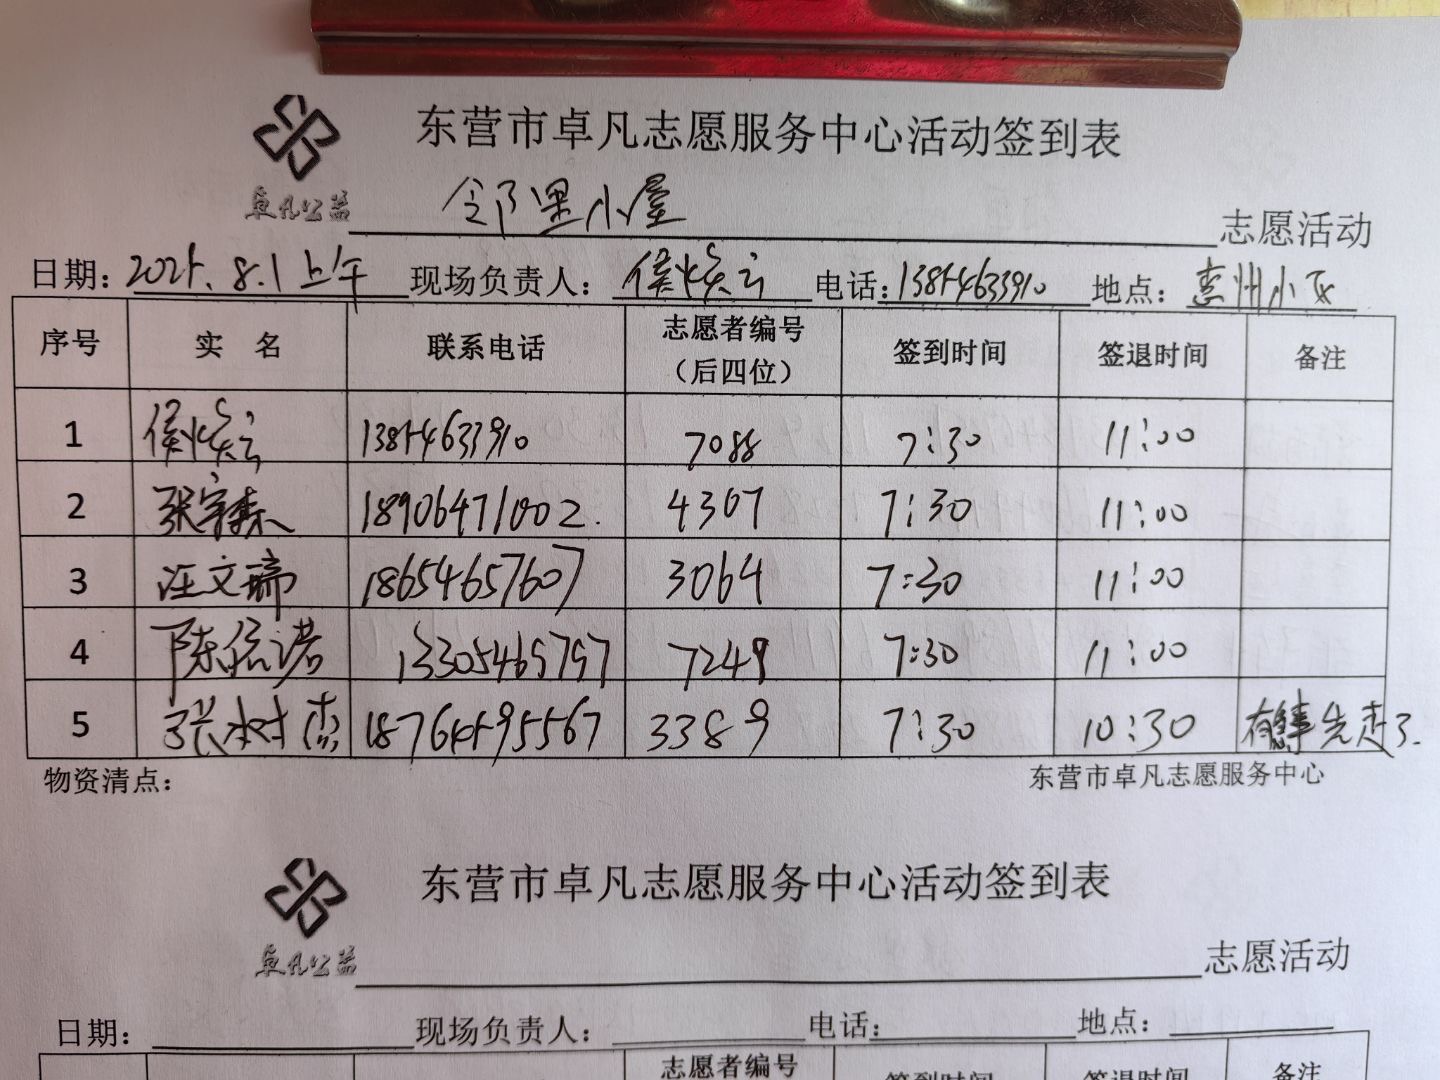 东营市卓凡志愿服务中心活动签到表
卓凡公益 邻里小屋 志愿活动
日期：2025.8.1上午 现场负责人：侯焕云 电话：13854633910 地点：惠州小区
序号 实 名 联系电话 志愿者编号（后四位） 签到时间 签退时间 备注
1 侯焕云 13854633910 7088 7:30 11:00
2 张宇森 18906471002. 4307 7:30 11:00
3 汪文瑞 18654657607 3064 7:30 11:00
4 陈依诺 13305469797 7249 7:30 11:00
5 张树杰 18764595567 3389 7:30 10:30 有事先走了.
物资清点： 东营市卓凡志愿服务中心
东营市卓凡志愿服务中心活动签到表
卓凡公益 志愿活动
日期： 现场负责人： 电话： 地点：
志愿者编号 签到时间 签退时间 备注